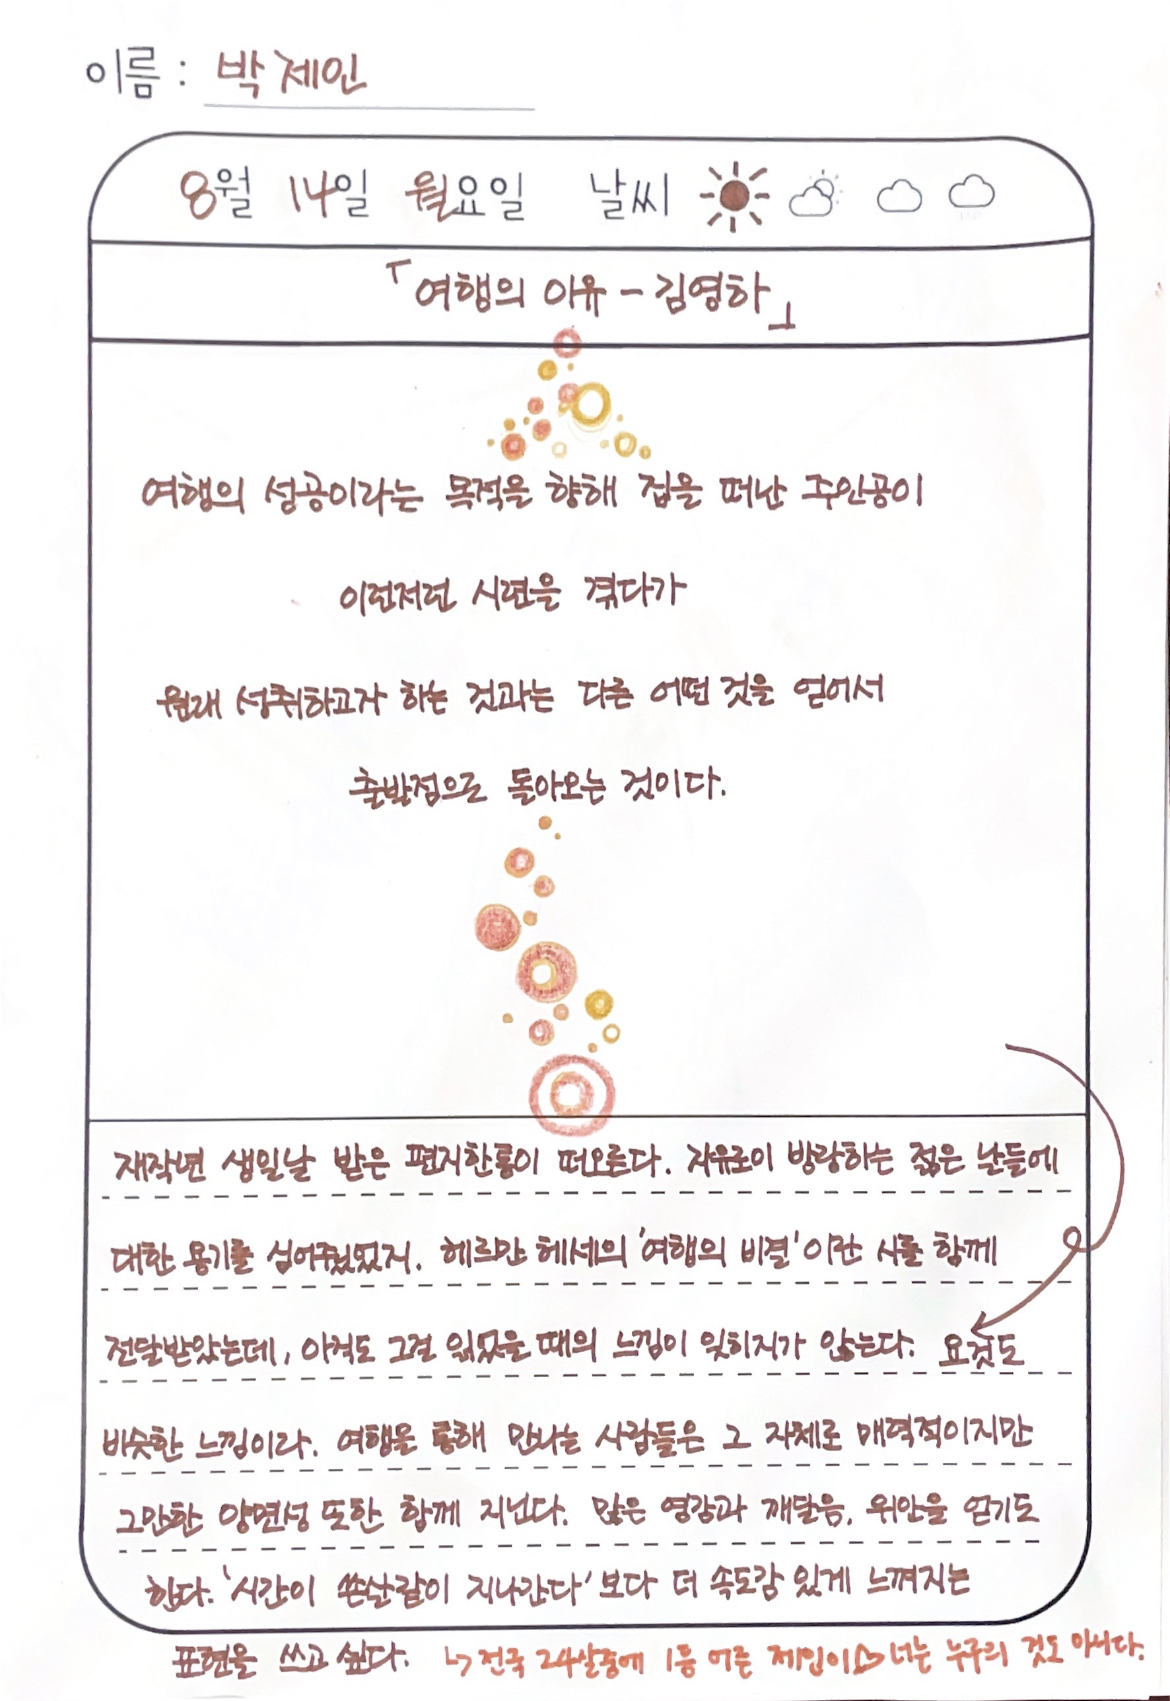 이름 : 박제인
8월 14일 월요일 날씨
「여행의 이유 - 김영하」
여행의 성공이라는 목적을 향해 집을 떠난 주인공이
이런저런 시련을 겪다가
원래 성취하고자 하는 것과는 다른 어떤 것을 얻어서
출발점으로 돌아오는 것이다.
재작년 생일날 받은 편지한통이 떠오른다. 자유로이 방랑하는 젊은 난들에
대한 용기를 심어줬었지. 헤르만 헤세의 '여행의 비결'이란 시를 함께
전달받았는데, 아직도 그걸 읽었을 때의 느낌이 잊히지가 않는다. 요것도
비슷한 느낌이라. 여행을 통해 만나는 사람들은 그 자체로 매력적이지만
그만한 양면성 또한 함께 지닌다. 많은 영감과 깨달음, 위안을 얻기도
한다. '시간이 쏜살같이 지나간다' 보다 더 속도감 있게 느껴지는
표현을 쓰고 싶다. ↳ 전국 24살중에 1등 어른 제인이 너는 누구의 것도 아니다.